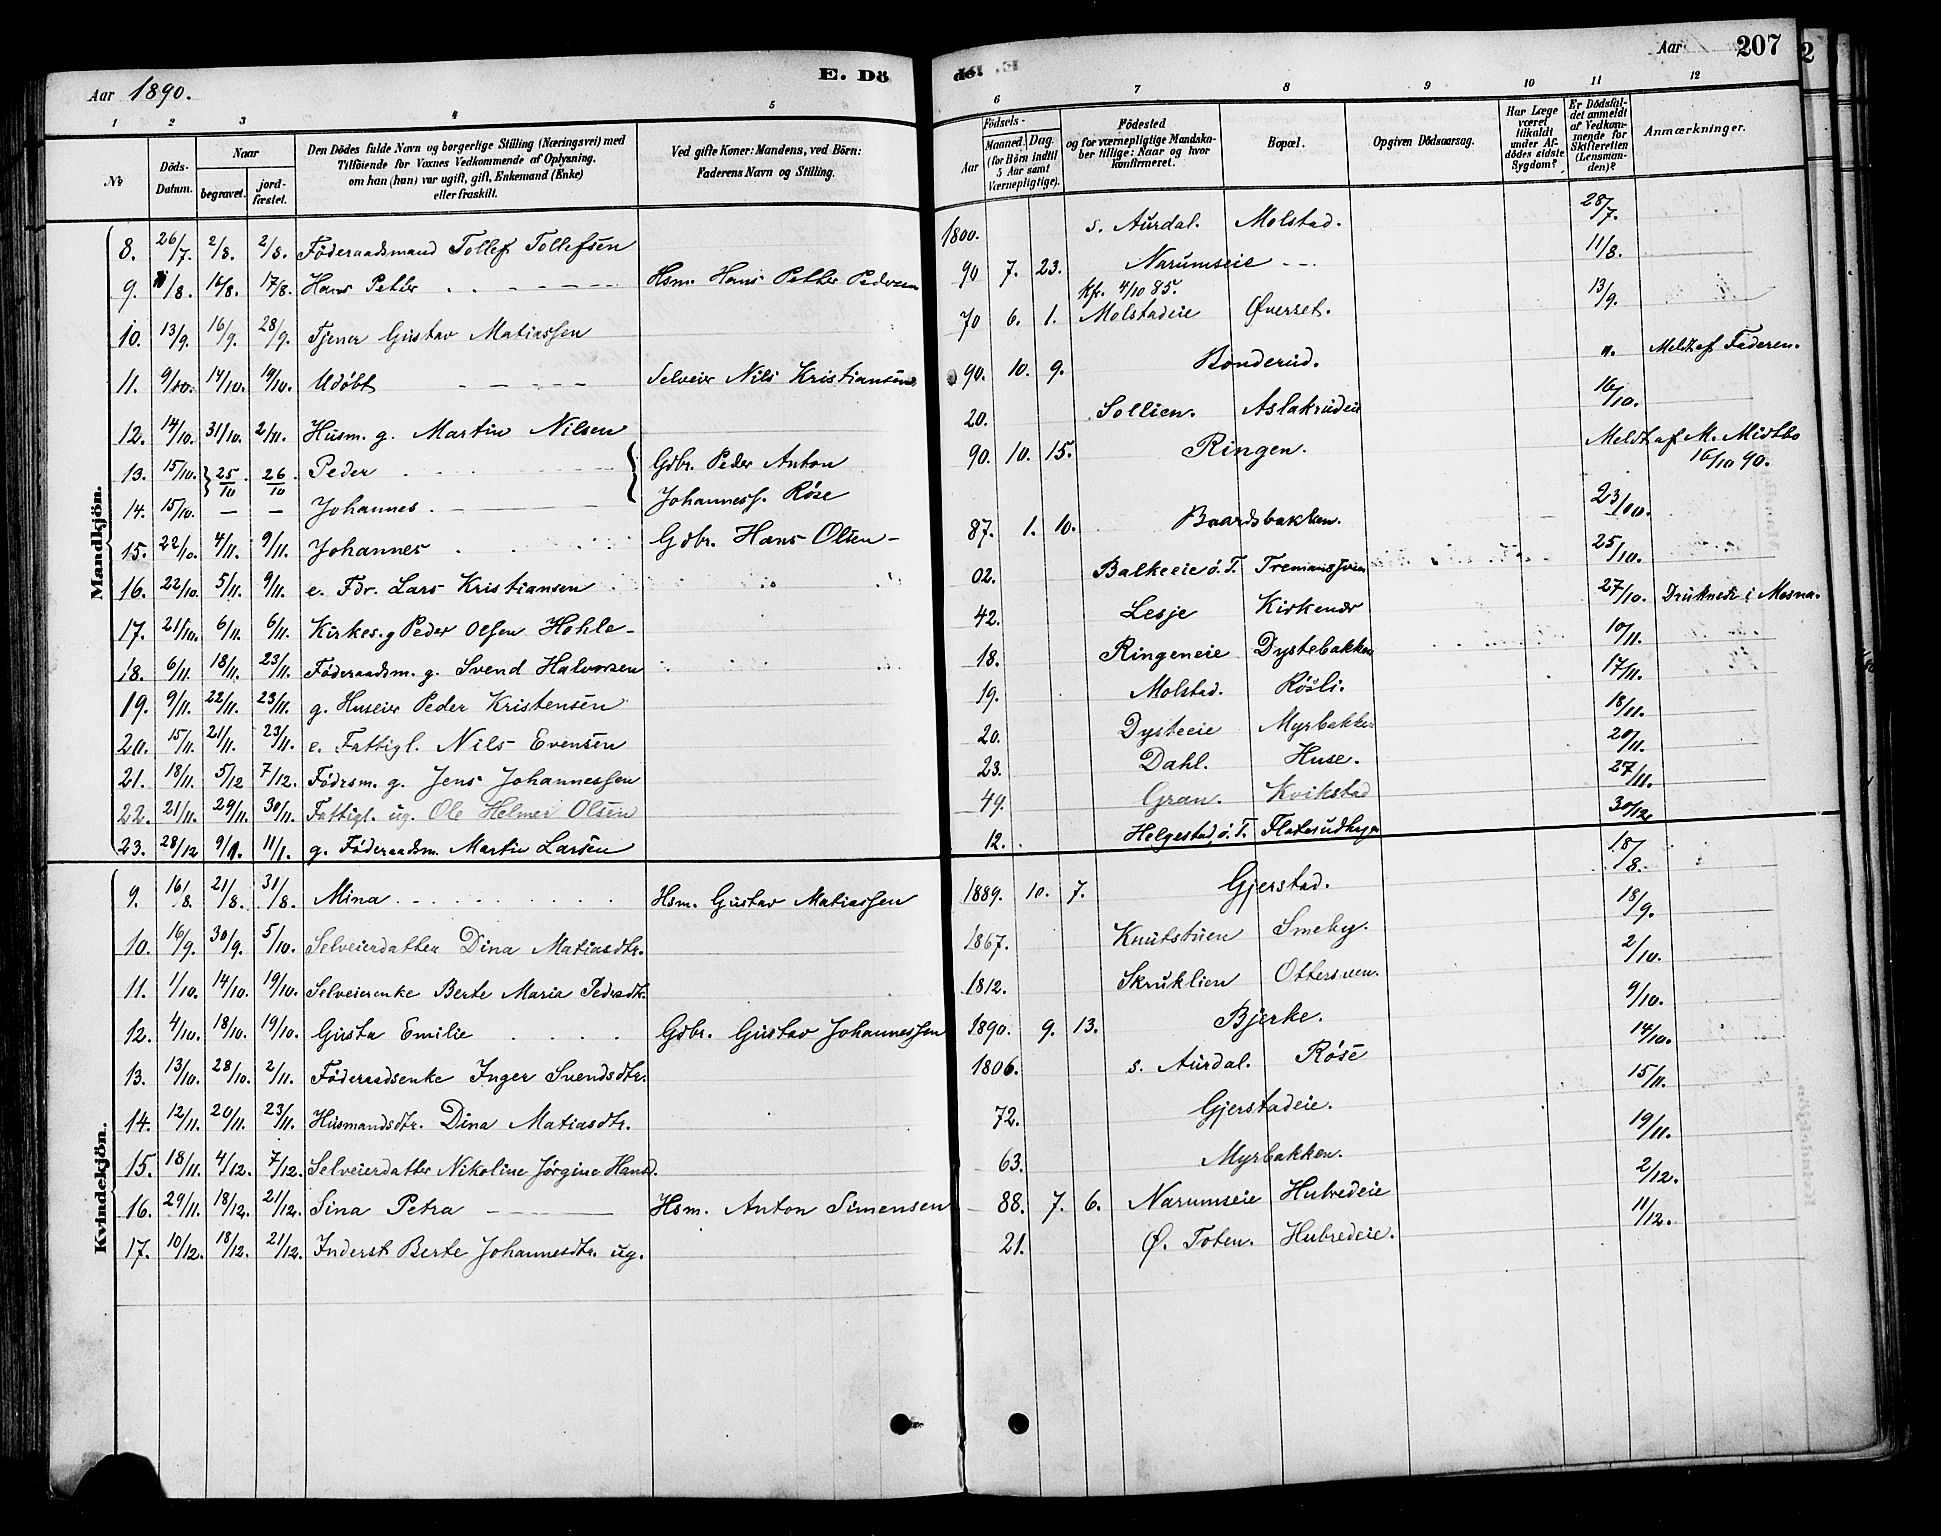 Aar 1890.
E. Dö
1 2 3 4 5
№
Döds-Datum.
Naar
begravet.
jord-fæstet.
Den Dödes fulde Navn og borgerlige Stilling (Næringsvei) med
Tilföiende for Voxnes Vedkommende af Oplysning,
om han (hun) var ugift, gift, Enkemand (Enke)
eller fraskilt.
Ved gifte Koner: Mandens, ved Börn:
Faderens Navn og Stilling.
Mandkjön.
8. 26/7. 2/8. 2/8. Föderaadsmand Tollef Tollefsen
9. /8. 16/8. 17/8. Hans Petter Hsm. Hans Petter Pedersen
10. 13/9. 16/9. 28/9. Tjener Gustav Matiassen
11. 9/10. 14/10. 19/10. Udöbt Selveier Nils Kristiansen
12. 14/10. 31/10. 2/11. Husm. g. Martin Nilsen
13. 15/10. 25/10. 26/10 Peder Gdbr. Peder Anton
14. 15/10. — — Johannes. Johanness. Röse
15. 22/10. 4/11. 9/11. Johannes Gdbr. Hans Olsen -
16. 22/10. 5/11. 9/11. e. Fdr. Lars Kristiansen
17. 21/10. 6/11. 6/11. Kirkes. g Peder Olsen Hohle-
18. 6/11. 18/11. 23/11. Föderaadsm. g. Svend Halvorsen
19. 9/11. 22/11. 23/11. g. Huseier Peder Kristensen
20. 15/11. 21/11. 23/11. e. Fattigl. Nils Evensen
21. 18/11. 5/12 7/12. Födrsm. g. Jens Johannessen
22. 21/11. 29/11. 30/11. Fattigl. ug. Ole Helmer Olsen
23. 28/12 9/1. 11/1. g. Föderaadsm. Martin Larsen
Kvindekjön.
9. 16/8. 21/8. 31/8. Mina Hsm. Gustav Matiassen
10. 16/9. 30/9. 5/10. Selveierdatter Dina Matiasdtr.
11. 1/10. 14/10. 19/10. Selveierenke Berte Maria Pedersdtr.
12. 4/10. 18/10. 19/10. Gusta Emilie Gdbr. Gustav Johannessen
13. 13/10. 28/10. 2/11. Föderaadsenke Inger Svendsdtr.
14. 12/11. 20/11. 23/11. Husmandsdtr. Dina Matiasdtr.
15. 18/11. 4/12. 7/12. Selveierdatter Nikoline Jörgine Hansd.
16. 29/11. 18/12. 21/12. Sina Petra Hsm. Anton Simensen
17. 10/12. 18/12. 21/12. Inderst Berte Johannesdtr. ug.
Aar 207
de.
6 7 8 9 10 11 12
Födsels-
Aar
Maaned. Dag.
(for Börn indtil
5 Aar samt
Værnepligtige).
Födested
og for værnepligtige Mandska-
ber tillige: Naar og hvor
konfirmeret.
Bopæl.
Opgiven Dödsaarsag.
Har Læge
været
tilkaldt
under Af-
dödes sidste
Sygdom?
Er Dödsfal-
det anmeldt
af Vedkom-
mende for
Skifteretten
(Lensman-
den)?
Anmærkninger.
1800. s. Aurdal. Molstad. 28/7.
90 7. 23. Narumseie 11/8.
Kfr. 4/10 85.
70 6. 1. Molstadeie Överset. 13/9.
90. 10. 9. Bonderud. n. Meldt af Faderen.
20. Sollien. Aslakrudeie 16/10.
90. 10. 15. Ringen. Meldt af M. Midtbo
16/10 90.
87. 1. 10. Baardsbakken. 23/10.
02. Balkeeie ö. T. 25/10.
42. Lesje 27/10. Druknede i Mesna.
18. Ringeneie Dystebakken 10/11.
19. Molstad. Rösli. 17/11.
20. Dysteeie Myrbakken 18/11.
23. Dahl. Huse. 20/11.
49. Gran. Kvikstad 27/11.
12. Helgestad, ö. T. 30/12
1889. 10. 7. Gjerstad. 18/8.
1867. Knutstuen Smeby. 18/9.
1812. Skruklien Ottersven. 2/10.
1890. 9. 13. Bjerke. 9/10.
1806. s. Aurdal. Röse 14/10.
72. Gjerstadeie. 15/11.
63. Myrbakken. 19/11.
88. 7. 6. Narumseie Hulvedeie 2/12.
21. Ö. Toten. Hubredeie. 11/12.